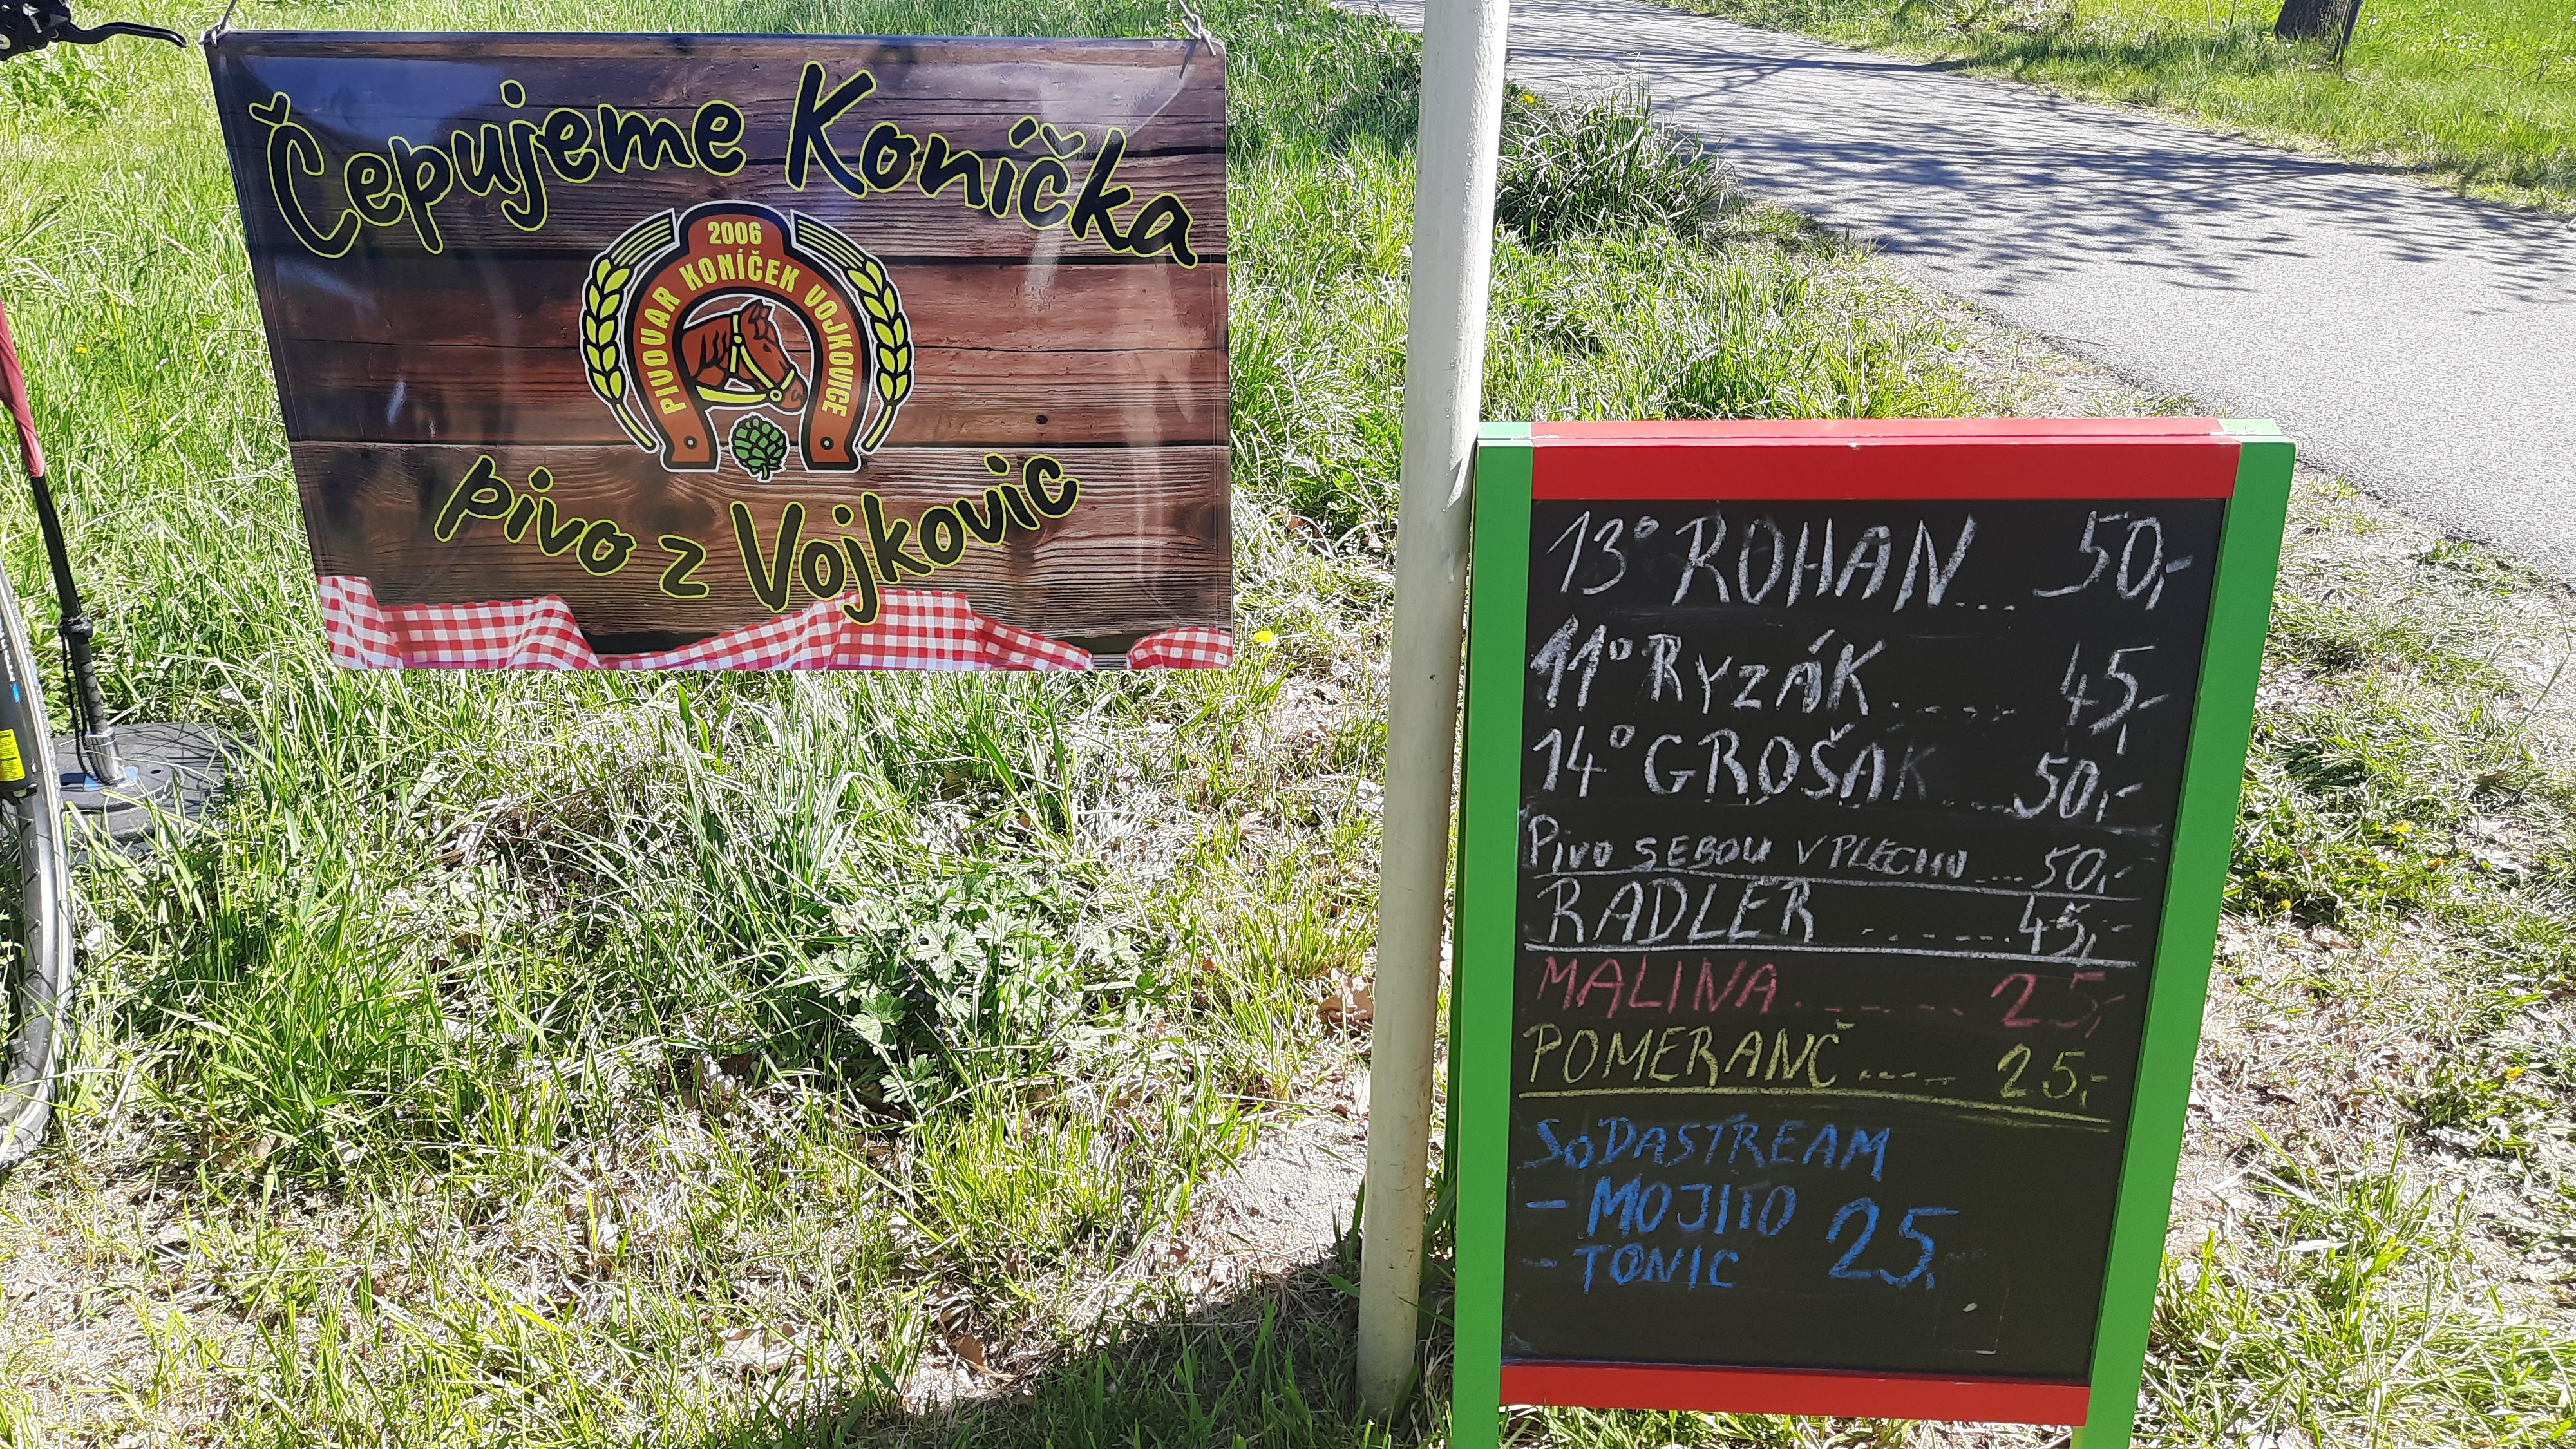 Čepujeme Koníčka
2006
PIVOVAR KONÍČEK VOJKOVICE
pivo z Vojkovic
13° ROHAN... 50,-
11° RYZÁK..... 45,-
14° GROŠÁK.... 50,-
PIVO SEBOU V PLECHU.... 50,-
RADLER ....... 45,-
MALINA...... 25,-
POMERANČ..... 25,-
SODASTREAM
- MOJITO 25,-
- TONIC